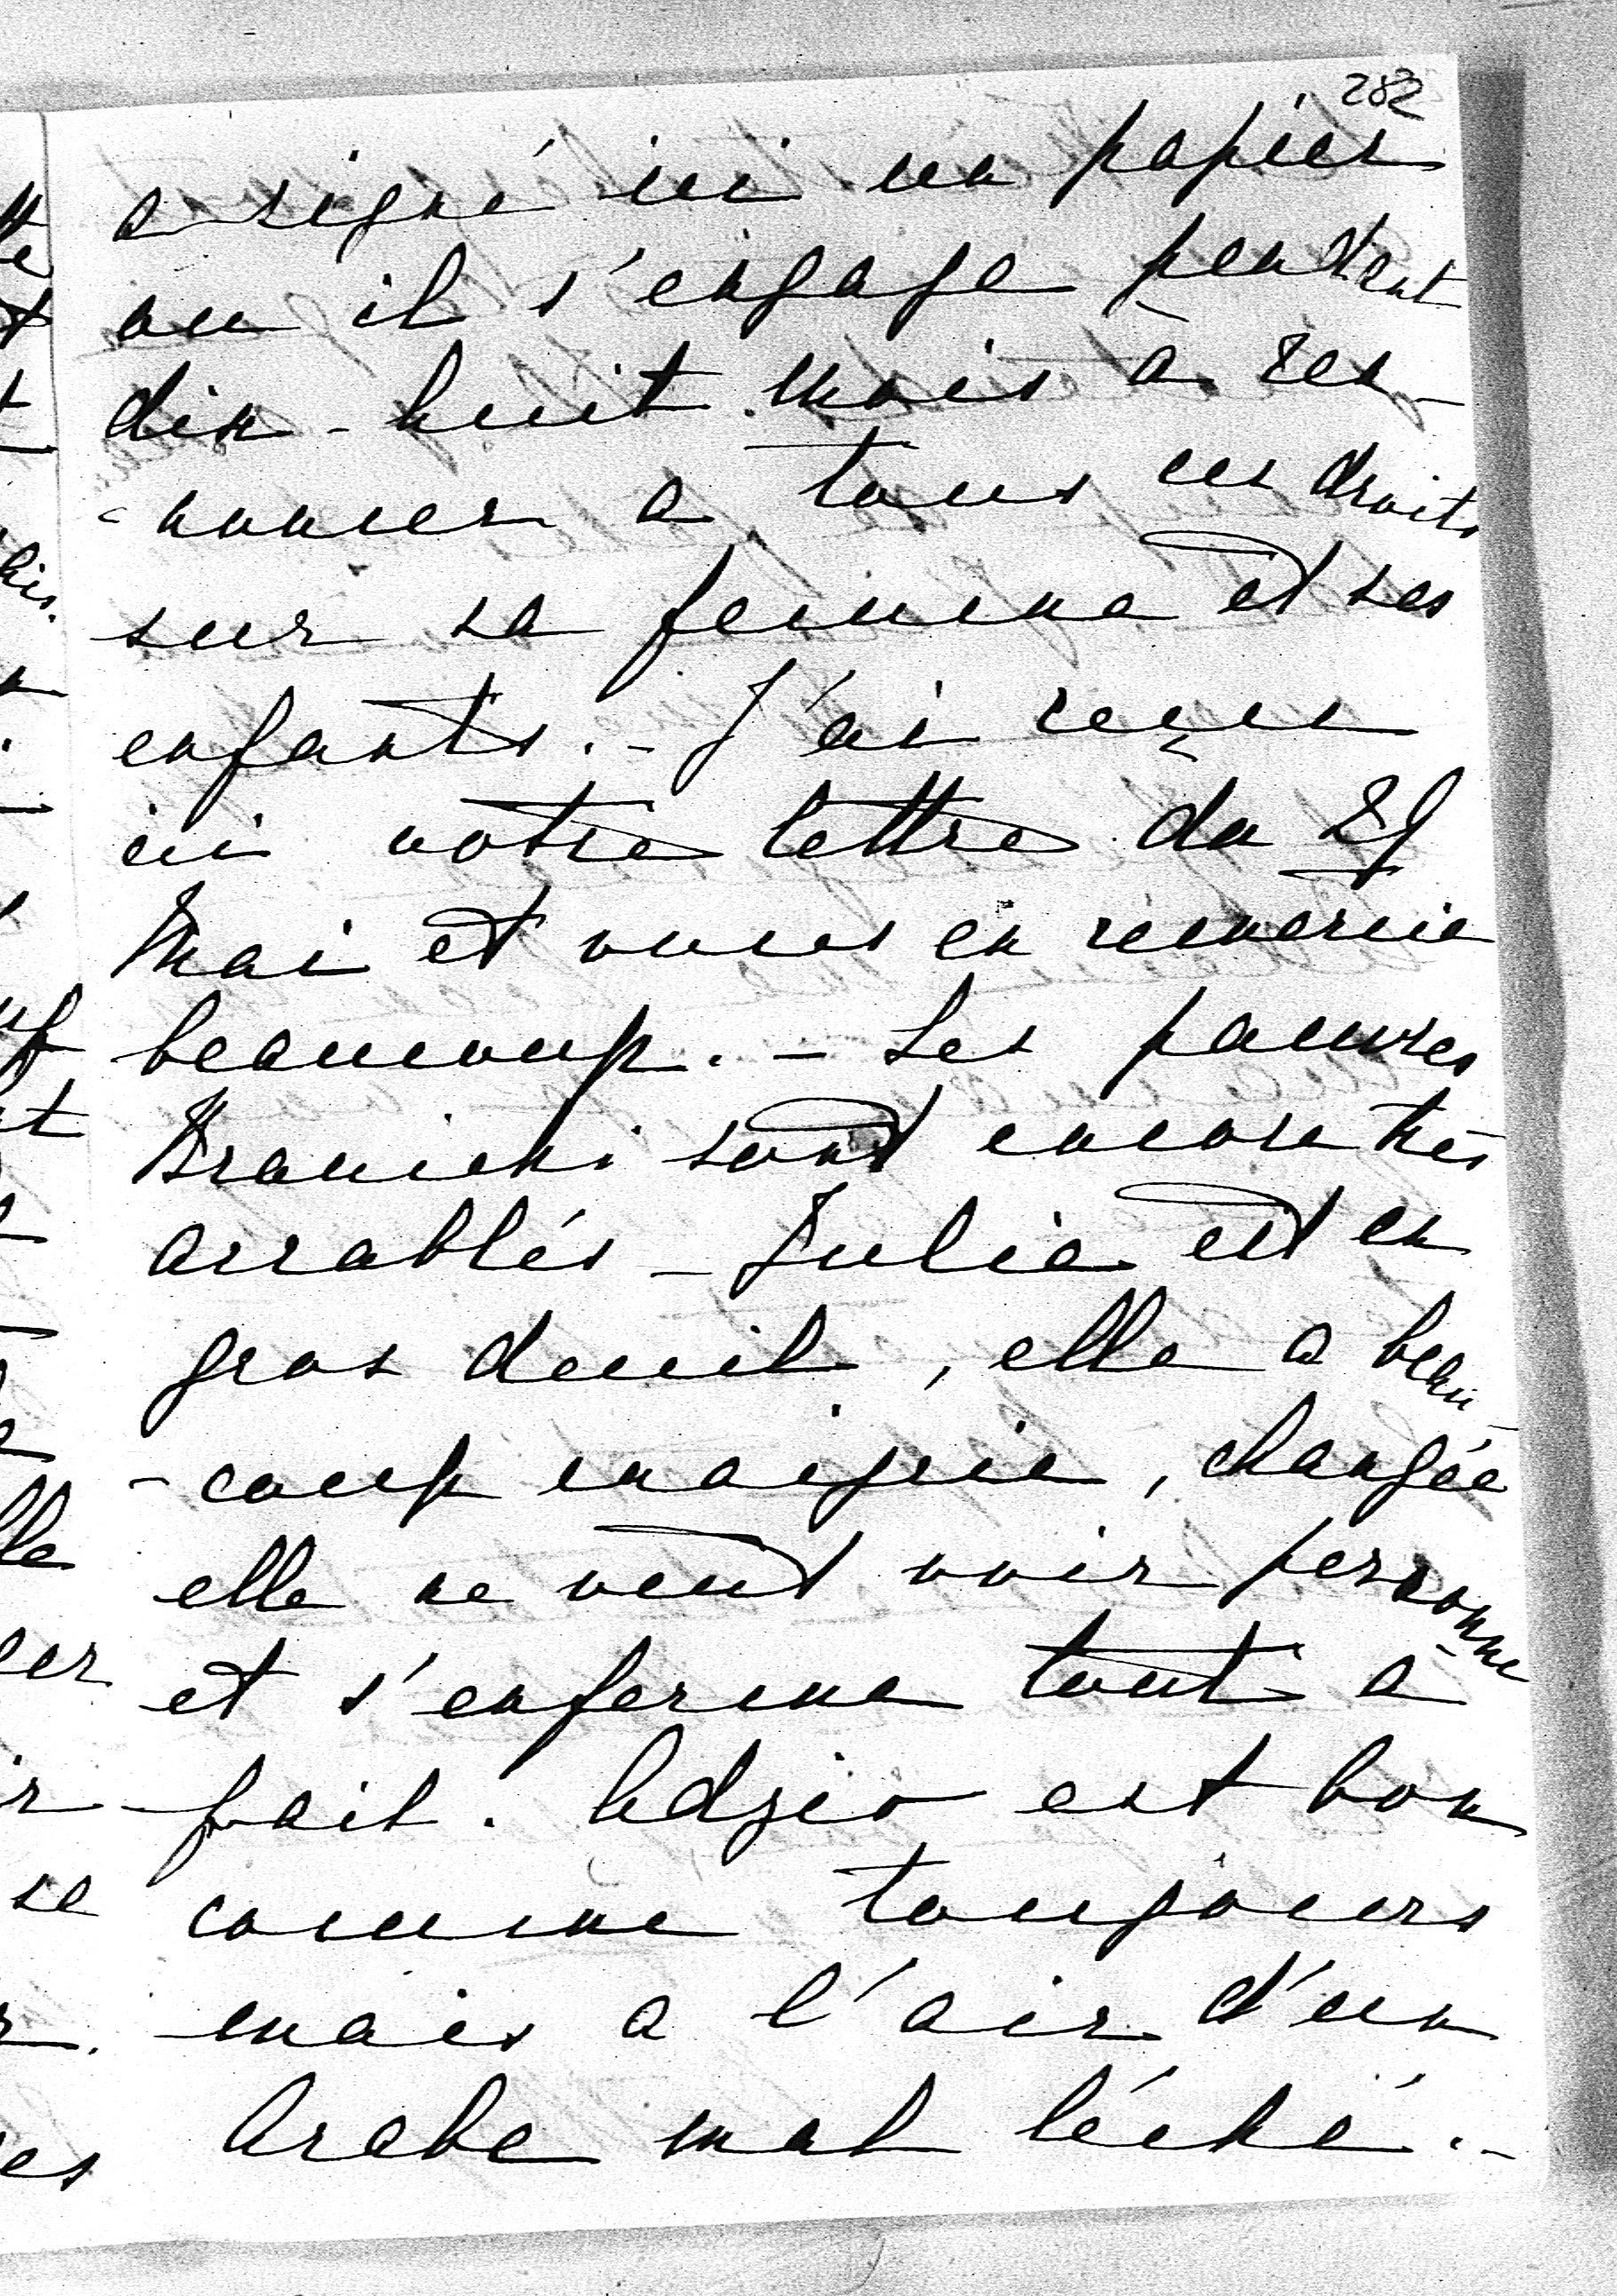 282
a signé ici un papier
ou il s'engage pendant
dix-huit mois a re-
-noncer a tous ces droits
sur sa femme et ses
enfants. - J'ai reçu
ici votre lettre du
Mai et vous en remercie
beaucoup. - Les pauvres
Branicki sont encore très
accablés - Julie est en
gros deuil, elle a beau-
-coup maigrie, changée
elle ne veut voir personne
et s'enferme tout a
fait. Adzio est bon
comme toujours
mais a l'air d'un
Arabe mal léché. -